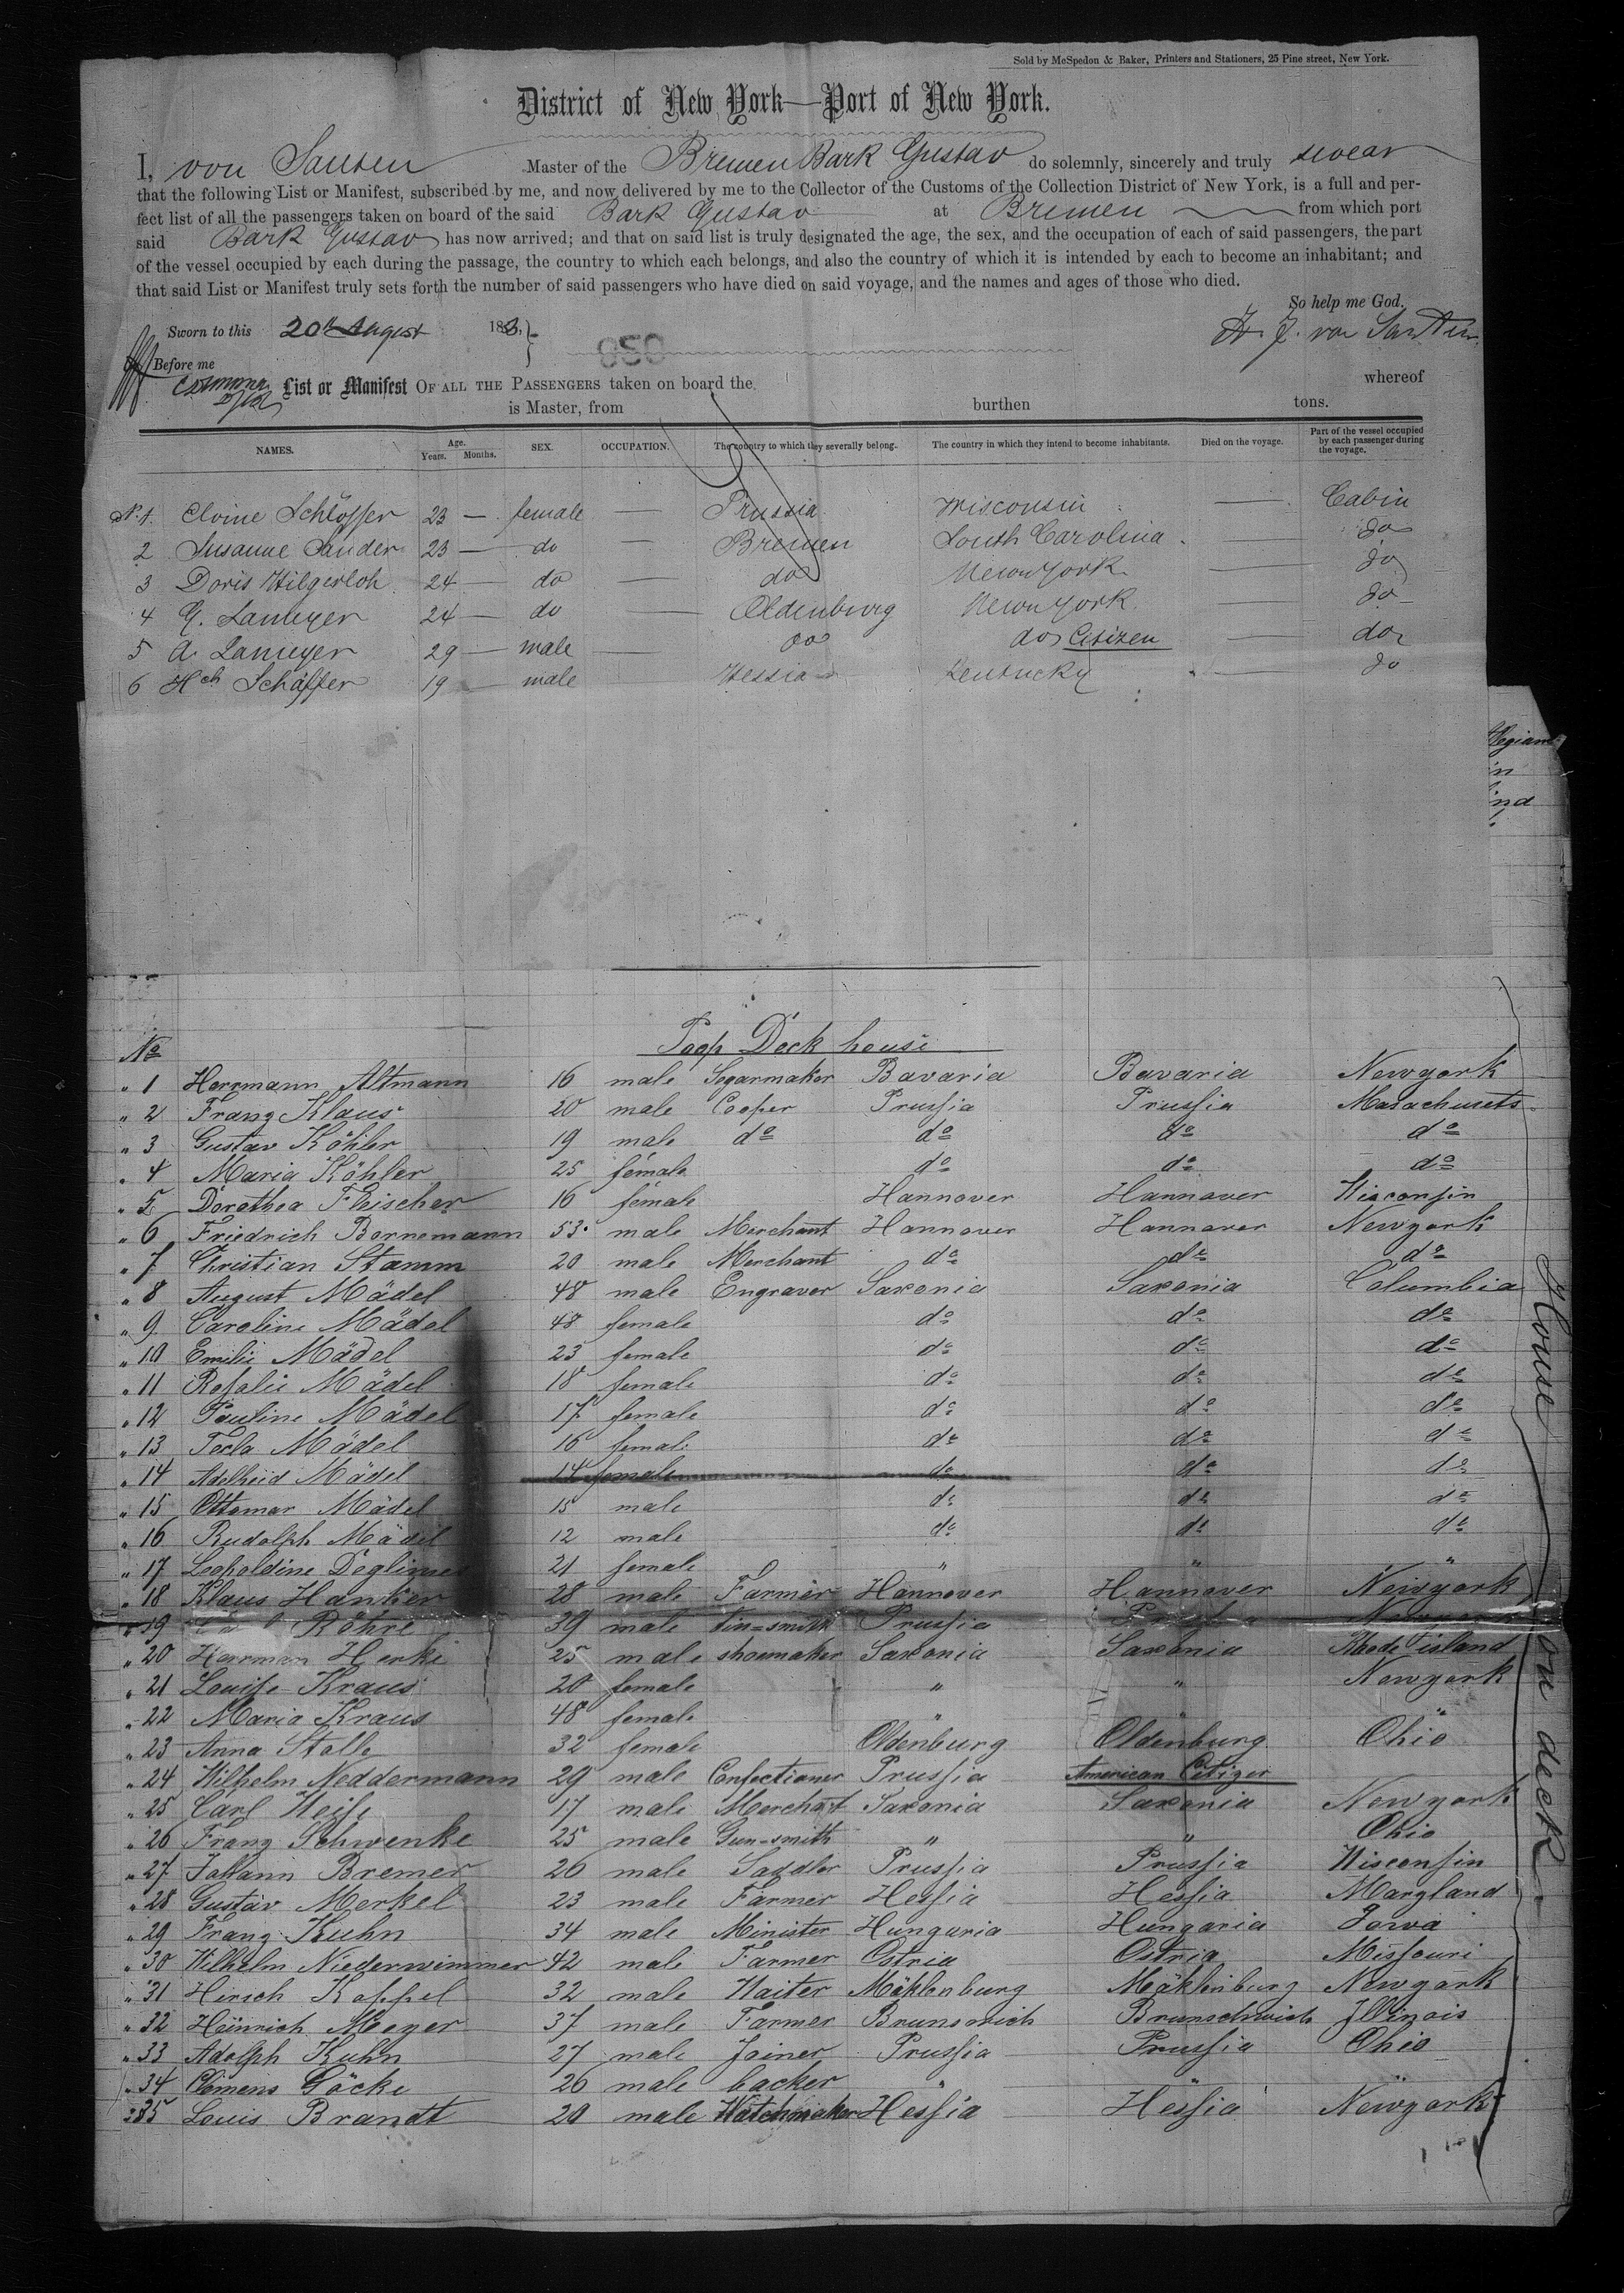 Sold by McSpedon & Baker, Printers and Stationers, 25 Pine street, New York.
District of New York—Port of New York.
I, von Santen Master of the Bremen Bark Gustav do solemnly, sincerely and truly swear
that the following List or Manifest, subscribed by me, and now delivered by me to the Collector of the Customs of the Collection District of New York, is a full and per-
fect list of all the passengers taken on board of the said Bark Gustav at Bremen from which port
said Bark Gustav has now arrived; and that on said list is truly designated the age, the sex, and the occupation of each of said passengers, the part
of the vessel occupied by each during the passage, the country to which each belongs, and also the country of which it is intended by each to become an inhabitant; and
that said List or Manifest truly sets forth the number of said passengers who have died on said voyage, and the names and ages of those who died.
So help me God.
Sworn to this 20th August 18 von Santen
950
Before me
List or Manifest OF ALL THE PASSENGERS taken on board the whereof
is Master, from burthen tons.
NAMES. Age. Years. Months. SEX. OCCUPATION. The country to which they severally belong. The country in which they intend to become inhabitants. Died on the voyage. Part of the vessel occupied by each passenger during the voyage.
No. 1. Elvine Schlösser 23 — female — Prussia Wisconsin — Cabin
2 Susanne Sander 23 — do — Bremen South Carolina — do
3 Doris Hilgerloh 24 — do — do New York — do
4 G. Lameyer 24 — do — Oldenburg New York — do
5 A. Lameyer 29 — male — do do Citizen — do
6 Hch Schäffer 19 — male Hessia Kentucky — do
No Poop Deck house
" 1 Herrmann Altmann 16 male Segarmaker Bavaria Bavaria Newyork
" 2 Franz Klaus 20 male Cooper Prussia Prussia Masachusets
" 3 Gustav Köhler 19 male do do do do
" 4 Maria Köhler 25 female do do do
" 5 Dorothea Fleischer 16 female Hannover Hannover Wisconsin
" 6 Friedrich Bornemann 53 male Merchant Hannover Hannover Newyork
" 7 Christian Stamm 20 male Merchant do do do
" 8 August Mädel 48 male Engraver Saxonia Saxonia Columbia
" 9 Caroline Mädel 48 female do do do
" 10 Emilie Mädel 23 female do do do
" 11 Rosalie Mädel 18 female do do do
" 12 Pauline Mädel 17 female do do do
" 13 Tecla Mädel 16 female do do do
" 14 Adelheid Mädel 14 female do do do
" 15 Ottomar Mädel 15 male do do do
" 16 Rudolph Mädel 12 male do do do
" 17 Leopoldine 21 female " " "
" 18 Klaus Hanker 28 male Farmer Hannover Hannover Newyork
" 19 Röhre 39 male tin=smith Prussia Prussia Newyork
" 20 Herrman Herke 25 male shoemaker Saxonia Saxonia Rhode island
" 21 Louise Kraus 20 female " " Newyork
" 22 Maria Kraus 48 female " " "
" 23 Anna Stolle 32 female Oldenburg Oldenburg Ohio
" 24 Wilhelm Neddermann 29 male Confectioner Prussia American Citizer
" 25 Carl Weise 17 male Merchant Saxonia Saxonia Newyork
" 26 Franz Schwenke 25 male Gun-smith " " Ohio
" 27 Johann Bremer 26 male Saddler Prussia Prussia Wisconsin
" 28 Gustav Merkel 23 male Farmer Hessia Hessia Maryland
" 29 Franz Kuhn 34 male Minister Hungaria Hungaria Jowa
" 30 Wilhelm Niederwimmer 42 male Farmer Ostria Ostria Missouri
" 31 Hersch Koppel 32 male Waiter Mäklenburg Mäklenburg Newyork
" 32 Heinrich Meyer 37 male Farmer Brunswich Brunschwich Jllinois
" 33 Adolph Kuhn 27 male Joiner Prussia Prussia Ohio
" 34 Clemens Göcke 26 male backer " " "
" 35 Louis Brandt 20 male Watchmaker Hessia Hessia Newyork
House on deck